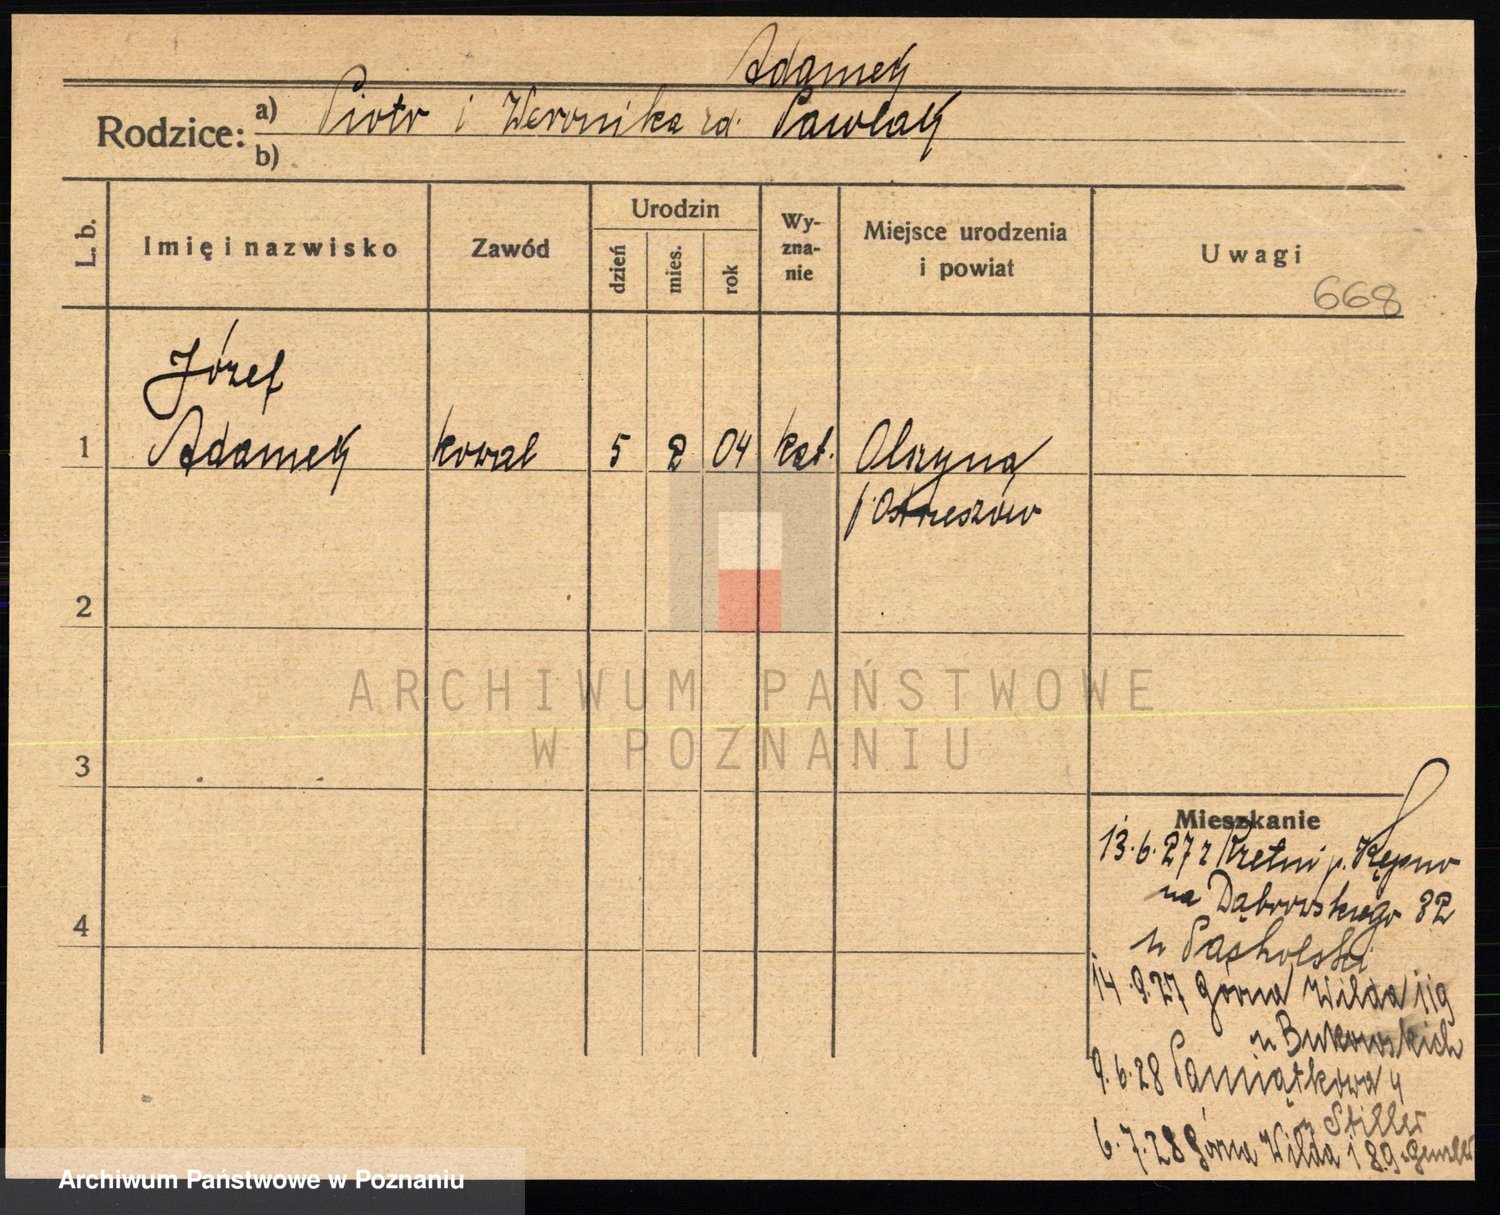 Adamek
Rodzice: a) Piotr i Weronika zd. Pawlak
b)
L. b.
Imię i nazwisko
Zawód
Urodzin
dzień
mies.
rok
Wy-
zna-
nie
Miejsce urodzenia
i powiat
Uwagi
668
Józef
1 Adamek kowal 5 2 04 kat. Olszyna
p. Ostrzeszów
2
ARCHIWUM PAŃSTWOWE
W POZNANIU
3
Mieszkanie
13.6.27 z p. Kępno
na Dąbrowskiego 32
4
u
14.9.27 Górna Wilda 119
u Bukowskich
9.6.28 Pamiątkowa 4
u Stiller
6.7.28 Górna Wilda 89
Archiwum Państwowe w Poznaniu